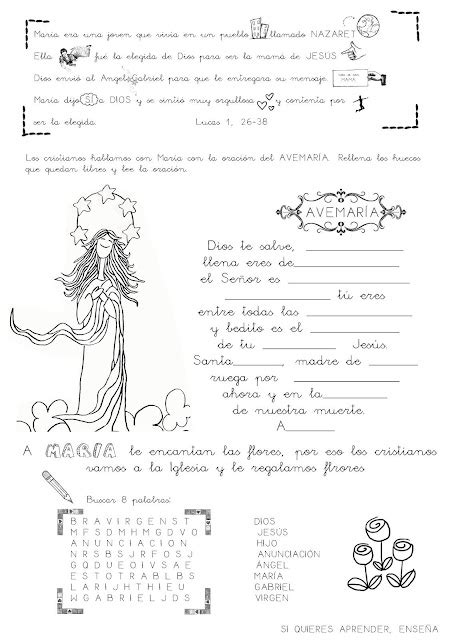 Maria era una joven que vivía en un pueblo llamado NAZARET
Ella fué la elegida de Dios para ser la mamá de JESÚS
Dios envió al Angel Gabriel para que le entregara su mensaje.
Maria dijo SI a DIOS y se sintió muy orgullosa y contenta por
ser la elegida. Lucas 1, 26-38
Los cristianos hablamos con Maria con la oración del AVEMARÍA. Rellena los huecos
que quedan libres y lee la oración.
AVEMARÍA
Dios te salve, ____________
llena eres de____________
el Señor es ____________
____________ tú eres
entre todas las ____________
y bedito es el ____________
de tu ________ Jesús.
Santa______, madre de ______
ruega por ____________
ahora y en la________
de nuestra muerte.
A______
A MARIA le encantan las flores, por eso los cristianos
vamos a la Iglesia y le regalamos flrores
Buscar 8 palabras:
B R A V I R G E N S T
M F S D M H M G D V O
A N U N C I A C I O N
N R S B S J R F O S J
G Q D U E O I V S A E
E S T O T R A B L B S
L A R I J H T H I E U
W G A B R I E L J D S
DIOS
JESÚS
HIJO
ANUNCIACIÓN
ÁNGEL
MARÍA
GABRIEL
VIRGEN
SI QUIERES APRENDER, ENSEÑA